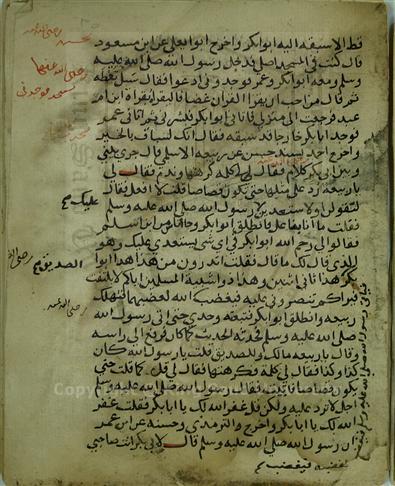 قط الا سبقه اليه ابوبكر واخرج ابويعلى عن ابن مسعود
قال كنت في المسجد اصلي فدخل رسول الله صلى الله عليه
وسلم ومعه ابوبكر وعمر فوجدني ادعوا فقال سل تعطه
ثم قال من احب ان يقرا القران غضا فليقرا بقراة ابن ام
عبد فرجعت الى منزلي فاتاني ابوبكر فبشرني ثم اتاني عمر
فوجد ابابكر خارجا قد سبقه فقال انك لسباق بالخير
واخرج احمد بسند حسن عن ربيعة الاسلمي قال جرى بيني
وبين ابي بكر كلام فقال لي كلمة كرهتها وندم فقال لي
يا ربيعة رد علي مثلها حتى يكون قصاصا قلت لا افعل فقال
لتقولن او لاستعدين رسول الله صلى الله عليه وسلم
فقلت ما انا بفاعل فانطلق ابوبكر وجا ناس من اسلم
فقالوا لي رحم الله ابابكر في اي شي يستعدي عليك وهو
الذي قال لك ما قال فقلت اتدرون من هذا هذا ابو
بكر هذا ثاني اثنين وهذا ذو شيبة المسلمين اياكم لا يلتفت
فيراكم تنصروني عليه فيغضب الله لغضبهما فتهلك
ربيعة وانطلق ابوبكر فتبعته وحدي حتى اتى رسول الله
صلى الله عليه وسلم فحدثه الحديث كما كان فرفع الي راسه
وقال يا ربيعة مالك وللصديق قلت يا رسول الله كان
كذا وكذا فقال لي كلمة فكرهتها فقال لي قل كما قلت حتى
يكون قصاصا فابيت فقال رسول الله صلى الله عليه وسلم
اجل لا ترد عليه ولكن قل غفر الله لك يا ابابكر فقلت غفر
الله لك يا ابابكر واخرج الترمذي وحسنه عن ابن عمر
ان رسول الله صلى الله عليه وسلم قال لابي بكر انت صاحبي
عليك صح
الصديق صح
رضي الله عنه